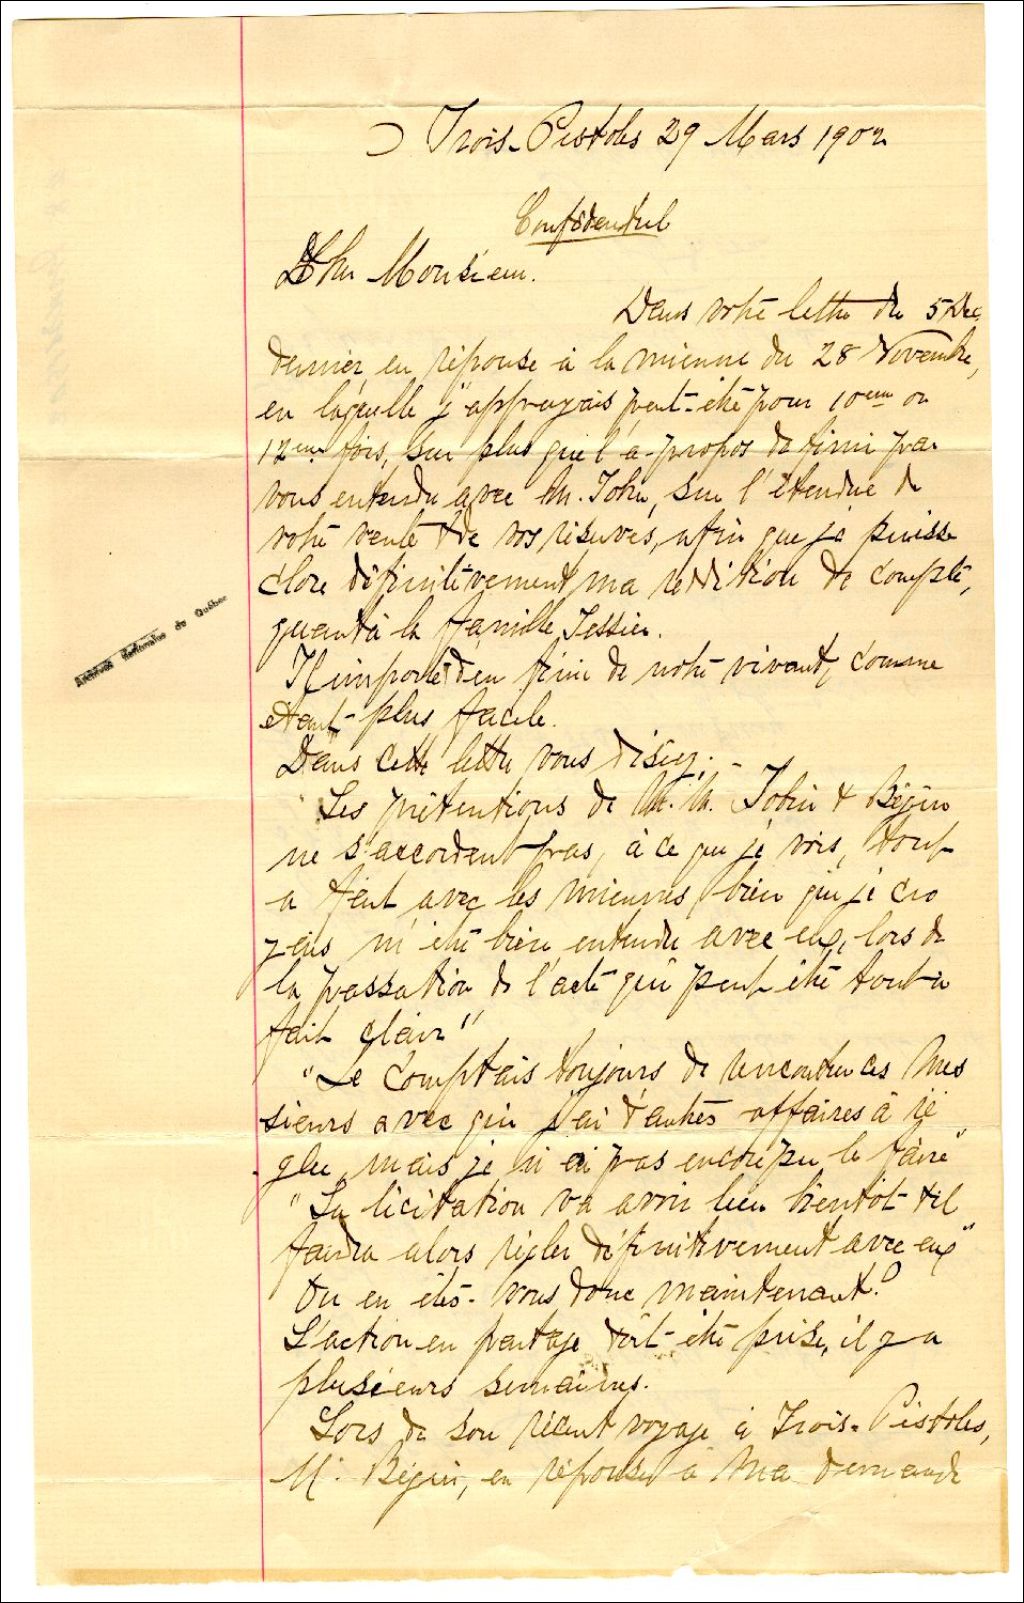 Trois-Pistoles 29 Mars 1902
Confidentiel
Cher Monsieur.
Dans votre lettre du 5 Dec.
dernier, en réponse à la mienne du 28 Novembre,
en laquelle j'appuyais peut-être pour 10eme ou
12eme fois, sur plus que l'a-propos de finir par
vous entendre avec M. Tobin, sur l'étendue de
votre vente & de vos réserves, afin que je puisse
clore définitivement ma reddition de compte,
quant à la famille Tessier.
Il importe d'en finir de notre vivant, comme
étant plus facile.
Dans cette lettre vous disiez:-
"Les prétentions de M.M. Tobin & Bégin
ne s'accordent pas, à ce que je vois, tout
a fait avec les miennes bien que je cro
yais m'être bien entendu avec eux, lors de
la passation de l'acte qui peut être tout a
fait clair"
"Je comptais toujours de rencontrer ces Mes
sieurs avec qui j'ai d'autres affaires à ré
gler, mais je n'ai pas encore pu le faire"
"La licitation va avoir lieu bientôt & il
faudra alors régler définitivement avec eux"
Ou en êtes-vous donc maintenant?
L'action en partage doit être prise, il y a
plusieurs semaines.
Lors de son récent voyage à Trois-Pistoles,
M. Bégin, en réponse à ma demande
Archives Nationales du Québec